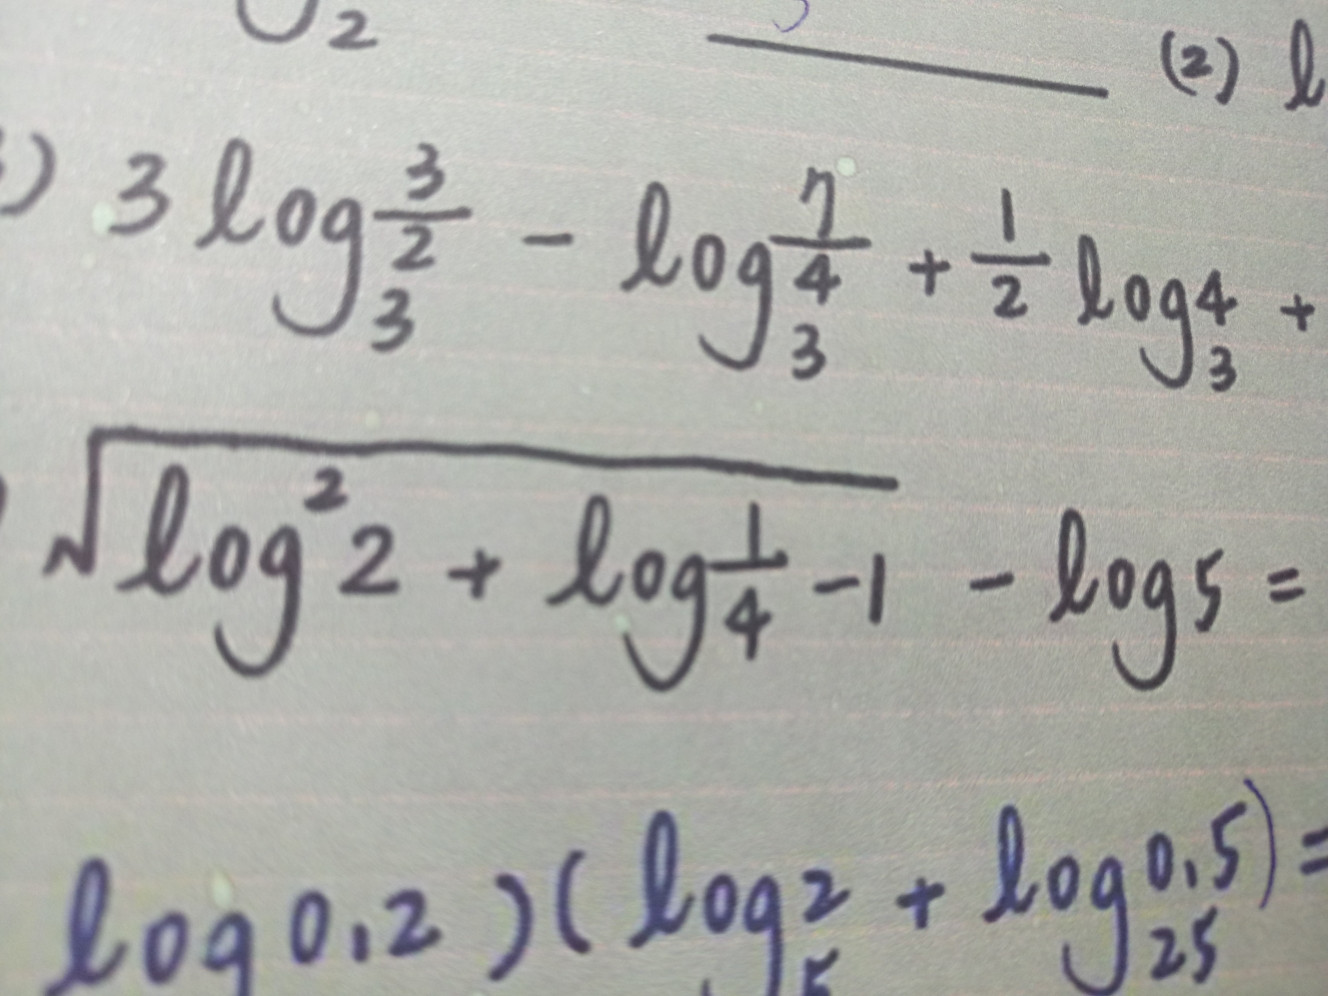 2 (2) l
) 3 log₃ 3/2 - log₃ 7/4 + 1/2 log₃ 4 +
√(log² 2 + log 1/4 - 1) - log 5 =
log 0,2 ) ( log₅ 2 + log₂₅ 0,5 ) =